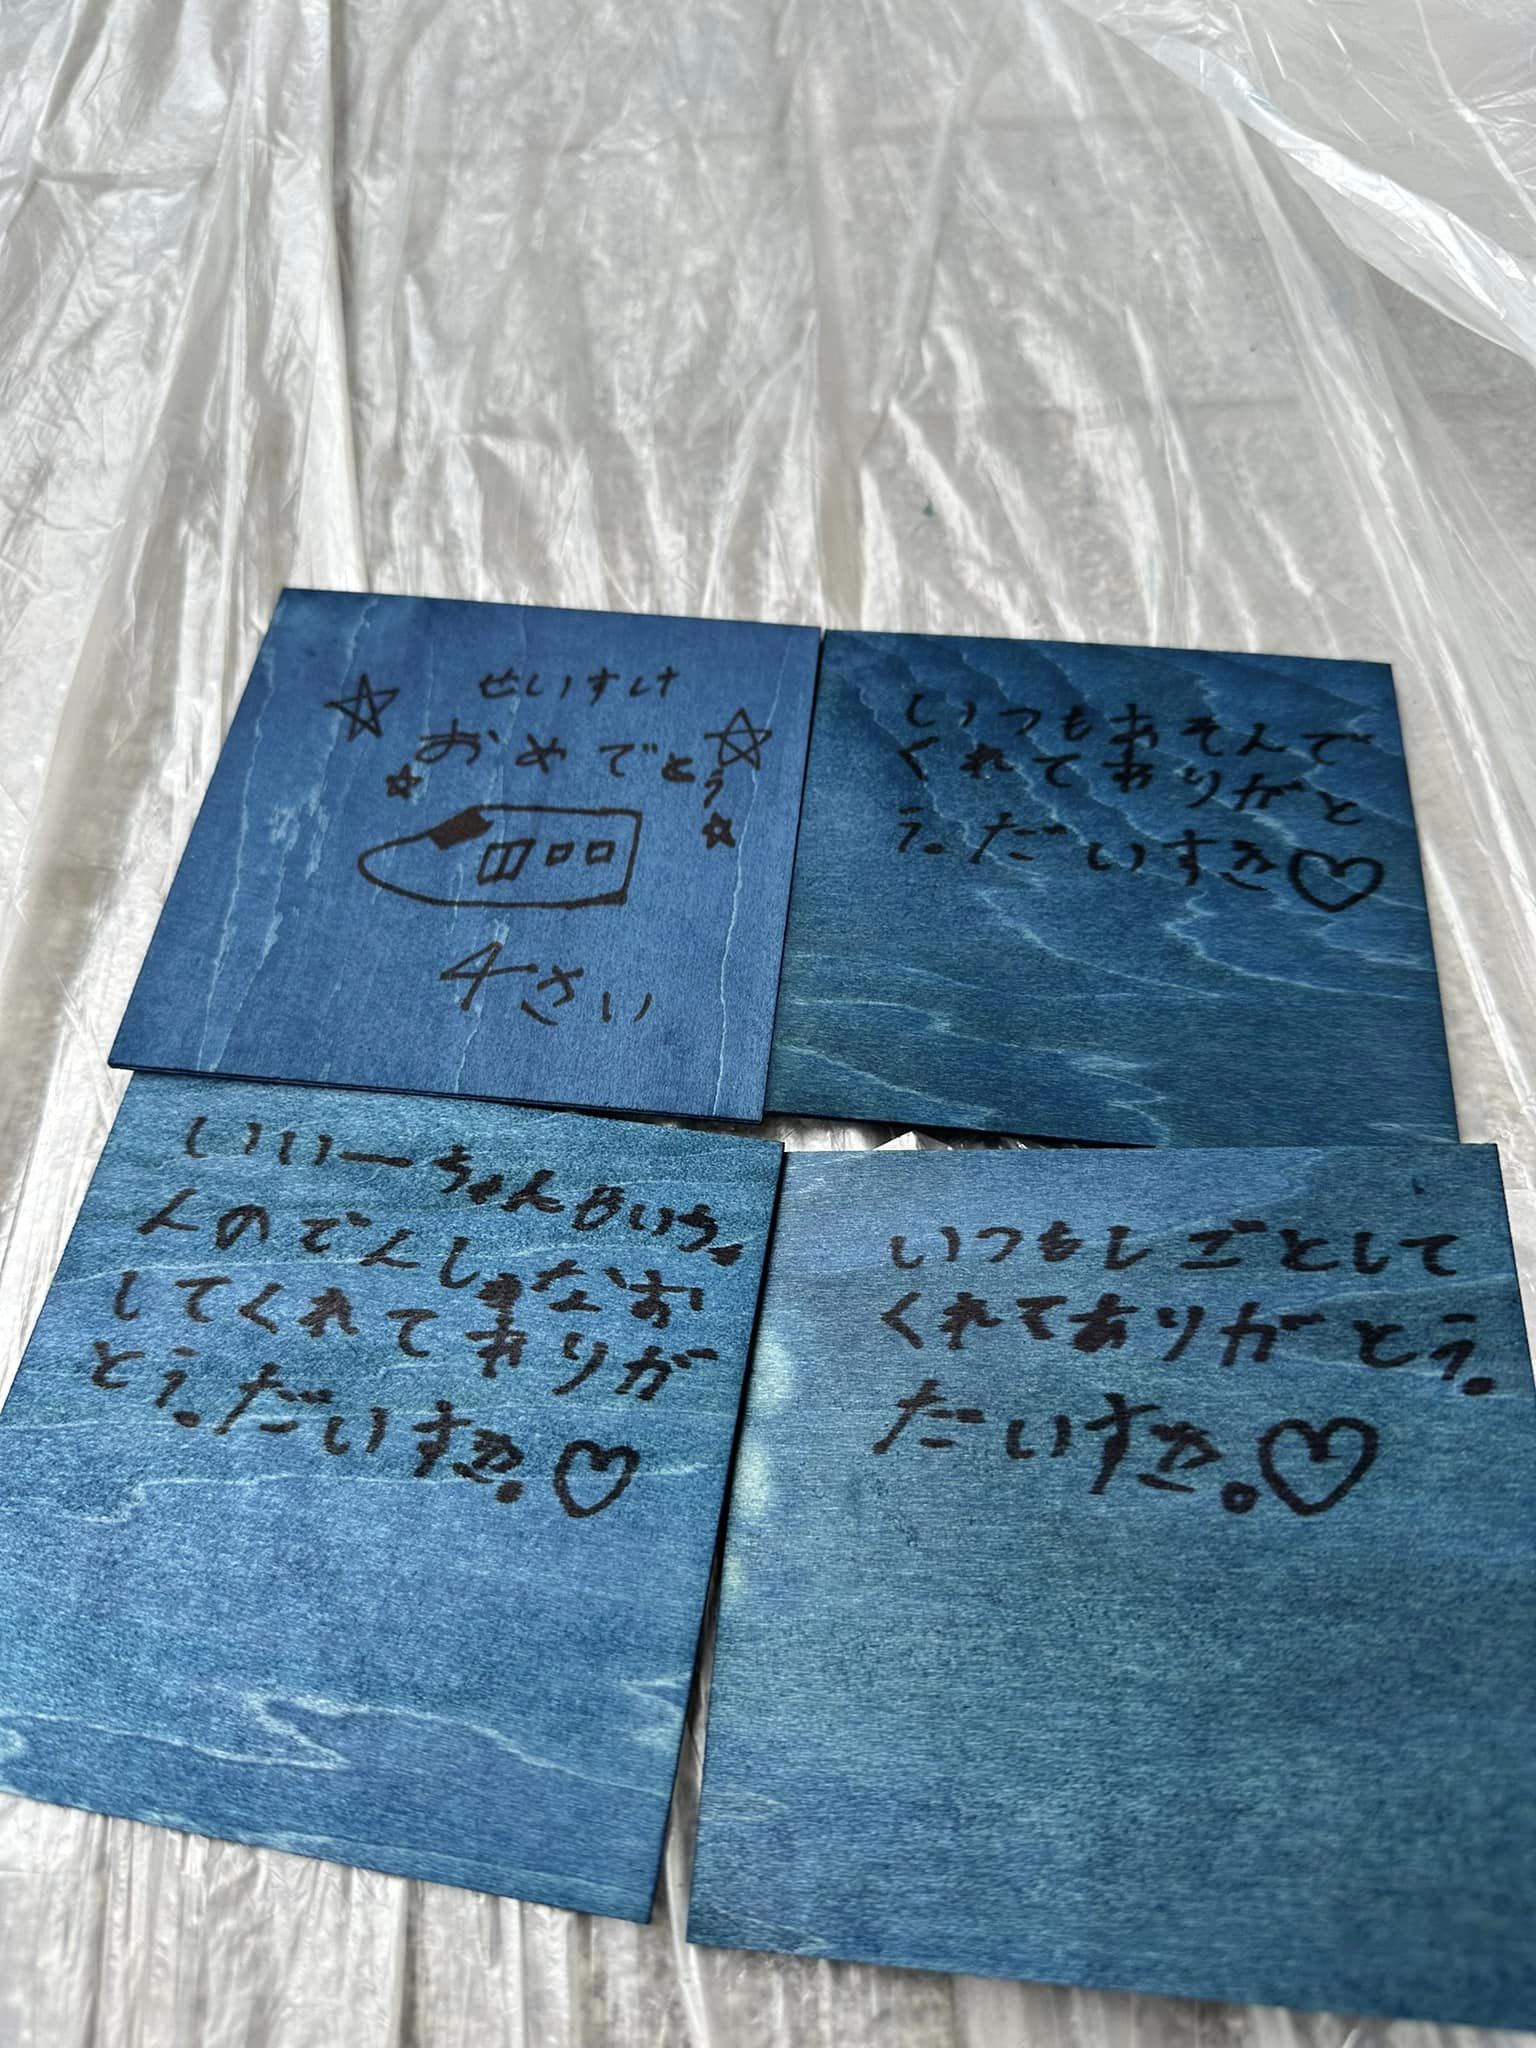 せいすけ
おめでとう
4さい
いつもあそんで
くれてありがと
う。だいすき♡
いいーちゃん
んのでんしゃなお
してくれてありが
とう。だいすき。♡
いつもしごとして
くれてありがとう。
たいすき。♡